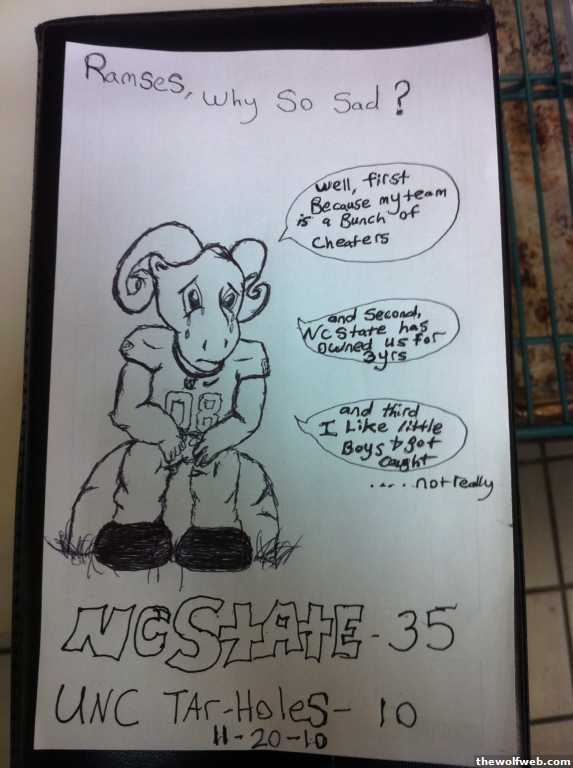 Ramses, Why So Sad?
Well, first
Because my team
is a Bunch of
Cheaters
and Second,
NC State has
owned us for
3yrs
08
and third
I Like little
Boys & got
caught
.... not really
NC STATE - 35
UNC TAr-HoleS - 10
11-20-10
thewolfweb.com